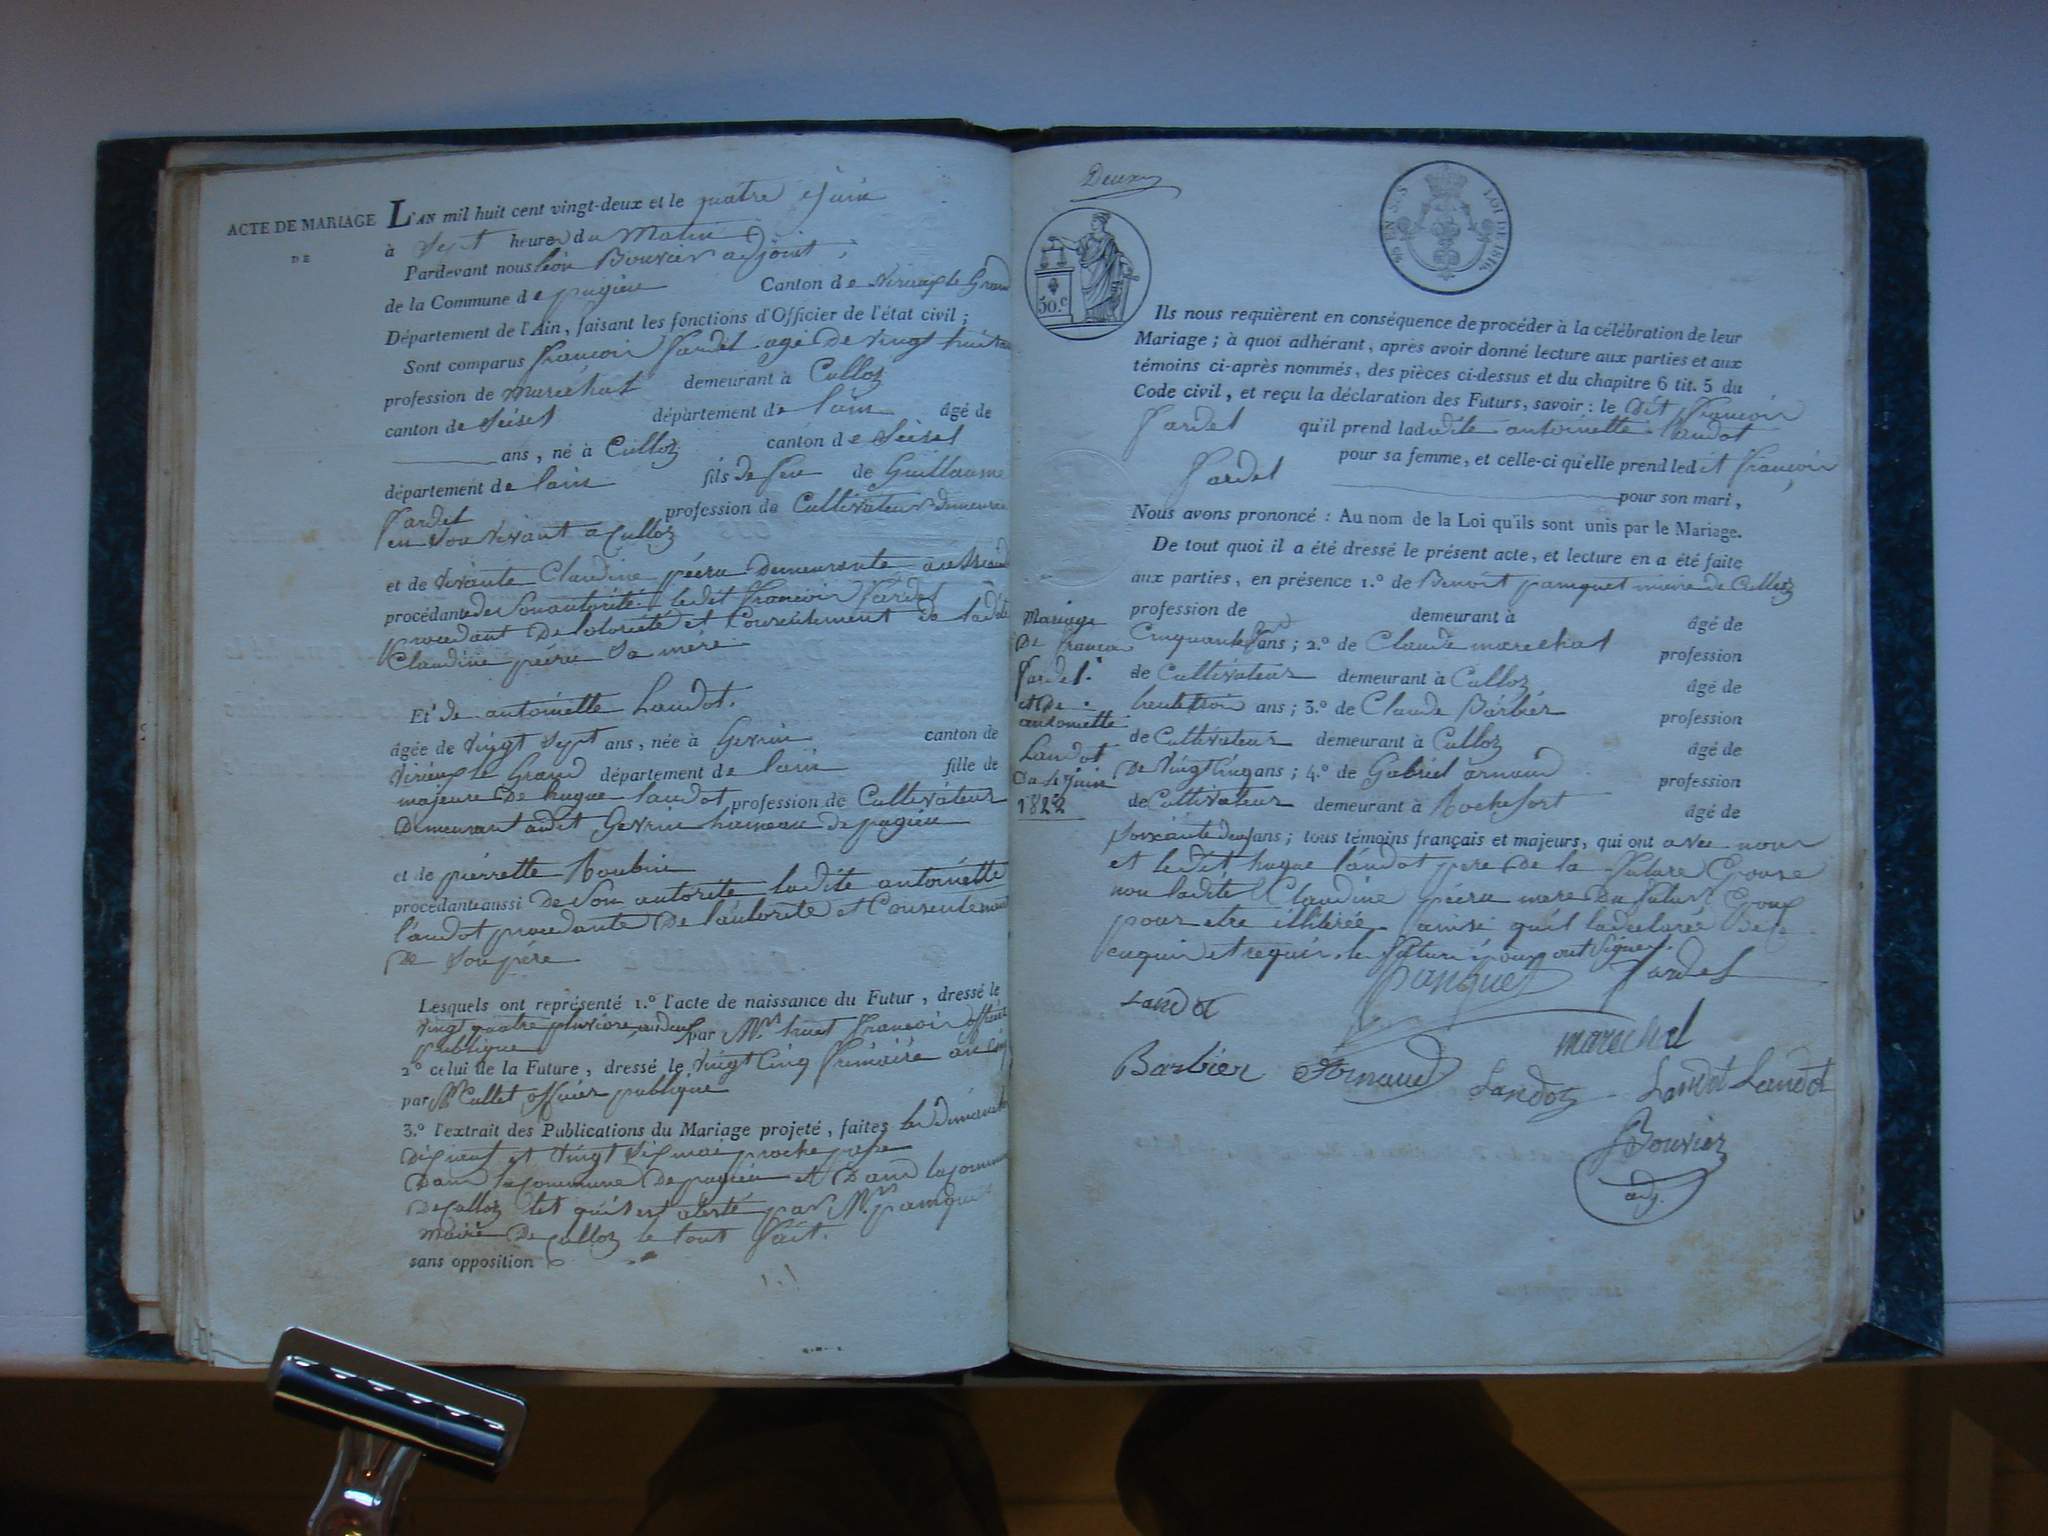 ACTE DE MARIAGE
DE
L'AN mil huit cent vingt-deux et le quatre juin
à Sept heures du Matin
Pardevant nous léon Bouvier adjoint
de la Commune de pugieu Canton de Virieux le Grand
Département de l'Ain, faisant les fonctions d'Officier de l'état civil ;
Sont comparus françois fardel agé de vingt huit ans
profession de maréchal demeurant à Culloz
canton de Seisel département de lain âgé de
ans, né à Culloz canton de Seisel
département de lain fils de feu de Guillaume
fardel profession de Cultivateur demeurant
en son vivant a Culloz
et de vivante Claudine pééru demeurante
procédante de son autorité ledit françois fardel
procedant de lotorité et Consentement de ladite
Claudine pééru sa mère
Et de antoinette Landot.
âgée de vingt sept ans, née à Gevrin canton de
Virieux le Grand département de lain fille de
majeure de hugue landot profession de Cultivateur
demeurant audit Gevrin hameau de pugieu
et de pierrette Roubin
procédante aussi de son autorité ladite antoinette
landot procedante de lautorité et Consentement
de son père
Lesquels ont représenté 1.º l'acte de naissance du Futur, dressé le
vingt quatre pluviose an deux par Mr. huet francois officier
publique
2º celui de la Future, dressé le vingt cinq frimaire an cinq
par Mr Cullet officier publique
3.º l'extrait des Publications du Mariage projeté, faites les dimanches
dix neuf et vingt six mai proche passé
dans la commune de pugieu et dans la commune
de Culloz tel qu'il est atesté par Mr. panquet
maire de Culloz le tout fait.
sans opposition
Deux
50.c
EN SUS
LOI DE 1816
Ils nous requièrent en conséquence de procéder à la célébration de leur
Mariage ; à quoi adhérant, après avoir donné lecture aux parties et aux
témoins ci-après nommés, des pièces ci-dessus et du chapitre 6 tit. 5 du
Code civil, et reçu la déclaration des Futurs, savoir : le dit françois
fardel qu'il prend ladite antoinette landot
pour sa femme, et celle-ci qu'elle prend ledit françois
fardel pour son mari,
Nous avons prononcé : Au nom de la Loi qu'ils sont unis par le Mariage.
De tout quoi il a été dressé le présent acte, et lecture en a été faite
aux parties, en présence 1.º de Benoit panquet maire de Culloz
profession de demeurant à âgé de
Cinquante ans ; 2.º de Claude marechal profession
de Cultivateur demeurant à Culloz âgé de
trente trois ans ; 3.º de Claude Barbier profession
de Cultivateur demeurant à Culloz âgé de
de vingt cinq ans ; 4.º de Gabriel arnaud profession
de Cultivateur demeurant à Rochefort âgé de
soixante deux ans ; tous témoins français et majeurs, qui ont avec nous
et ledit hugue landot pere de la future Epouse
non ladite Claudine pééru mere du futur Epoux
pour etre illiterée ainsi qu'il ladeclarée de ce
enquis et requis. le futur epoux ont signé.
Mariage
De francois
fardel.
et de
antoinette
Landot
Du 4 juin
1822
panquet fardel
Landot
marechal
Barbier Arnaud Landoz Landot Landot
Bouvier
adj.